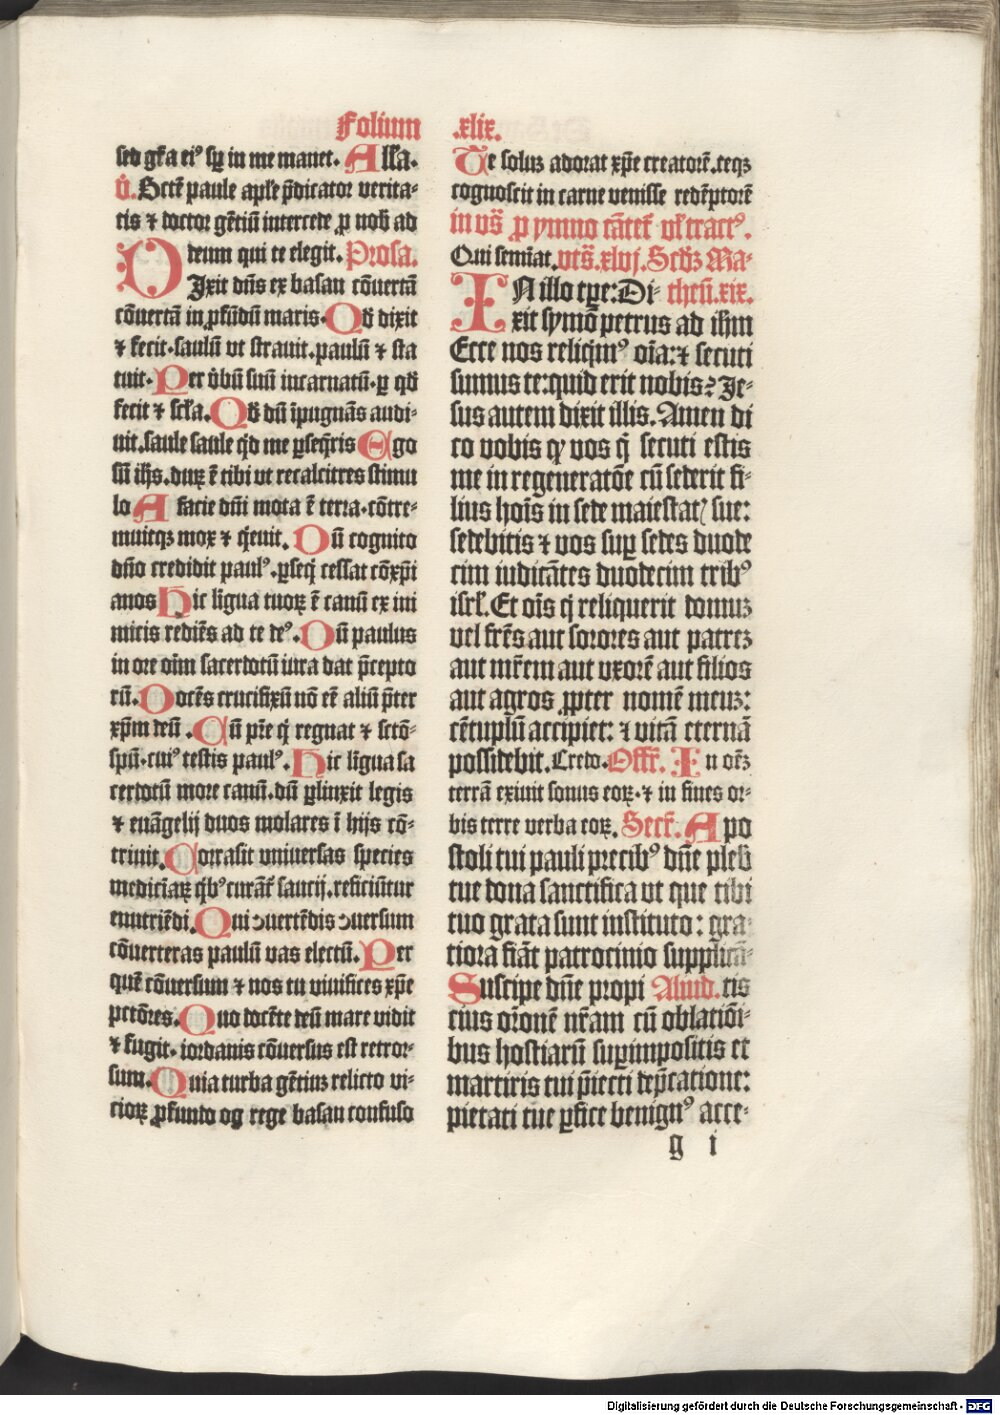 Folium xlix.
sed gr̄a ei⁹ sꝑ in me manet. Alla.
v̇. Scte̅ paule aplē p̄dicator verita-
tis ⁊ doctor ge̅tiu̅ intercede ꝓ nob̄ ad
deum qui te elegit. Prosa.
DIxit dn̄s ex basan co̅uerta̅
co̅uerta̅ in ꝓfu̅du̅ maris. Qd̄ dixit
⁊ fecit. saulu̅ vt strauit. paulu̅ ⁊ sta
tuit. Per v̇bu̅ suu̅ incarnatu̅. ꝑ qd̄
fecit ⁊ scl̄a. Qd̄ du̅ i̅pugna̅s audi-
uit. saule saule qd̄ me ꝑseq̄ris Ego
su̅ ih̄s. duꝝ e̅ tibi vt recalcitres stimu
lo A facie dn̄i mota e̅ terra. co̅tre-
muitqꝫ mox ⁊ q̄euit. Du̅ cognito
dn̄o credidit paul⁹. ꝑseq̄ cessat co̅xp̄i
anos Hic li̅gua tuoꝝ e̅ canu̅ ex ini
micis redie̅s ad te de⁹. Du̅ paulus
in ore oi̅m sacerdotu̅ iura dat p̄cepto
ru̅. Doce̅s crucifixu̅ no̅ e̅e̅ aliu̅ p̄ter
xp̄m deu̅. Cu̅ pr̄e q̄ regnat ⁊ scto̅-
spu̅. cui⁹ testis paul⁹. Hic li̅gua sa
cerdotu̅ more canu̅. du̅ ꝑlinxit legis
⁊ eua̅gelij duos molares i̅ hijs co̅-
triuit. Corrasit vniuersas species
medici̅aꝝ qb⁹ cura̅t̄ saucij. reficiu̅tur
enutrie̅di. Qui ꝯuerte̅dis ꝯuersum
co̅uerteras paulu̅ vas electu̅. Per
que̅ co̅uersum ⁊ nos tu viuifices xp̄e
pcto̅res. Quo doce̅te deu̅ mare vidit
⁊ fugit. iordanis co̅uersus est retror-
sum. Quia turba ge̅tiuꝫ relicto vi-
cioꝝ ꝓfundo og rege basan confuso
Te soluꝫ adorat xp̄e creatore̅. teqꝫ
cognoscit in carne venisse rede̅ptore̅
in vs̄ ꝓ ymno ca̅tet̄ vl̄ tract⁹.
Qui semi̅at. vts̄. xlvj. Scd̄ꝫ Ma-
IN illo tp̄e: Di- theu̅. xix.
xit symo̅ petrus ad ih̄m
Ecce nos reliqim⁹ oi̅a: ⁊ secuti
sumus te: quid erit nobis? Je-
sus autem dixit illis. Amen di
co vobis qꝫ vos q̄ secuti estis
me in regenerato̅e cu̅ sederit fi-
lius hoi̅s in sede maiestatꝭ sue:
sedebitis ⁊ vos suꝑ sedes duode
cim iudica̅tes duodecim trib⁹
isrl̄. Et oi̅s q̄ reliquerit domuꝫ
vel fre̅s aut sorores aut patreꝫ
aut mr̄em aut vxore̅ aut filios
aut agros ꝓpter nome̅ meuꝫ:
ce̅tuplu̅ accipiet: ⁊ vita̅ eterna̅
possidebit. Credo. Offr̄. In oe̅ꝫ
terra̅ exiuit sonus eoꝝ. ⁊ in fines or-
bis terre verba eoꝝ. Secr̄. Apo
stoli tui pauli precib⁹ dn̄e pleb̄
tue dona sanctifica vt que tibi
tuo grata sunt instituto: gra-
tiora fia̅t patrocinio supplica̅-
Suscipe dn̄e propi Aliud. tis
cius or̄one̅ nr̄am cu̅ oblatio̅i-
bus hostiaru̅ suꝑimpositis et
martiris tui p̄iecti dep̄catione:
pietati tue ꝑfice benign⁹ acce-
g i
Digitalisierung gefördert durch die Deutsche Forschungsgemeinschaft - DFG